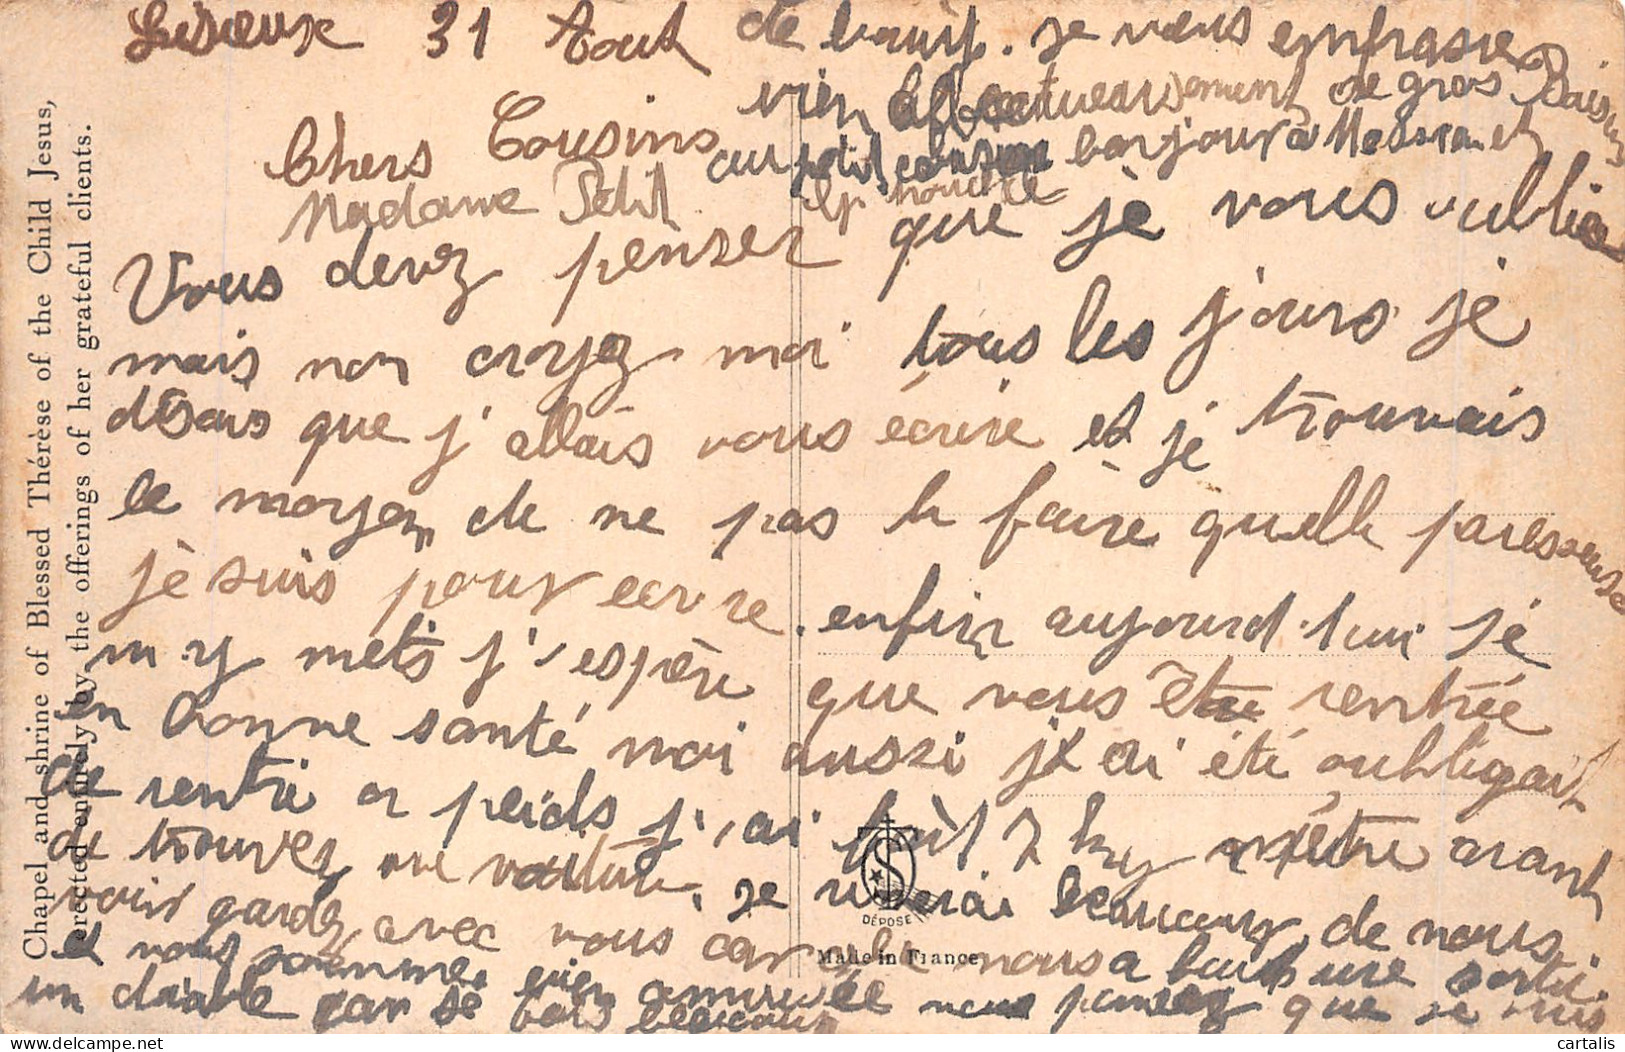 Lisieux 31 Aout
Chers Cousins
Madame Petit
Vous devez penser que je vous oublie
mais non croyez moi tous les jours je
disais que j'allais vous écrire et je trouvais
le moyen de ne pas le faire quelle paresseuse
je suis pour ecrire. enfin aujourd'hui je
m'y mets j'espère que vous ête rentrée
en bonne santé moi aussi j'ai été oubligait
de rentré a pieds j'ai fait 7 km mètre avant
de trouvez une voiture. je rierai beaucoup de nous
voir gardez avec vous car elle nous a bait une sortie
et nous sommes bien amusée nous pensez que je suis
un diable car je bois beaucoup
de bruit. je vous embrasse
bien affectueusement de gros baisers
au petit cousin bonjour à Maman et
que je
Chapel and shrine of Blessed Thérèse of the Child Jesus,
erected entirely by the offerings of her grateful clients.
S
DÉPOSÉ
Made in France
cartalis
delcampe.net